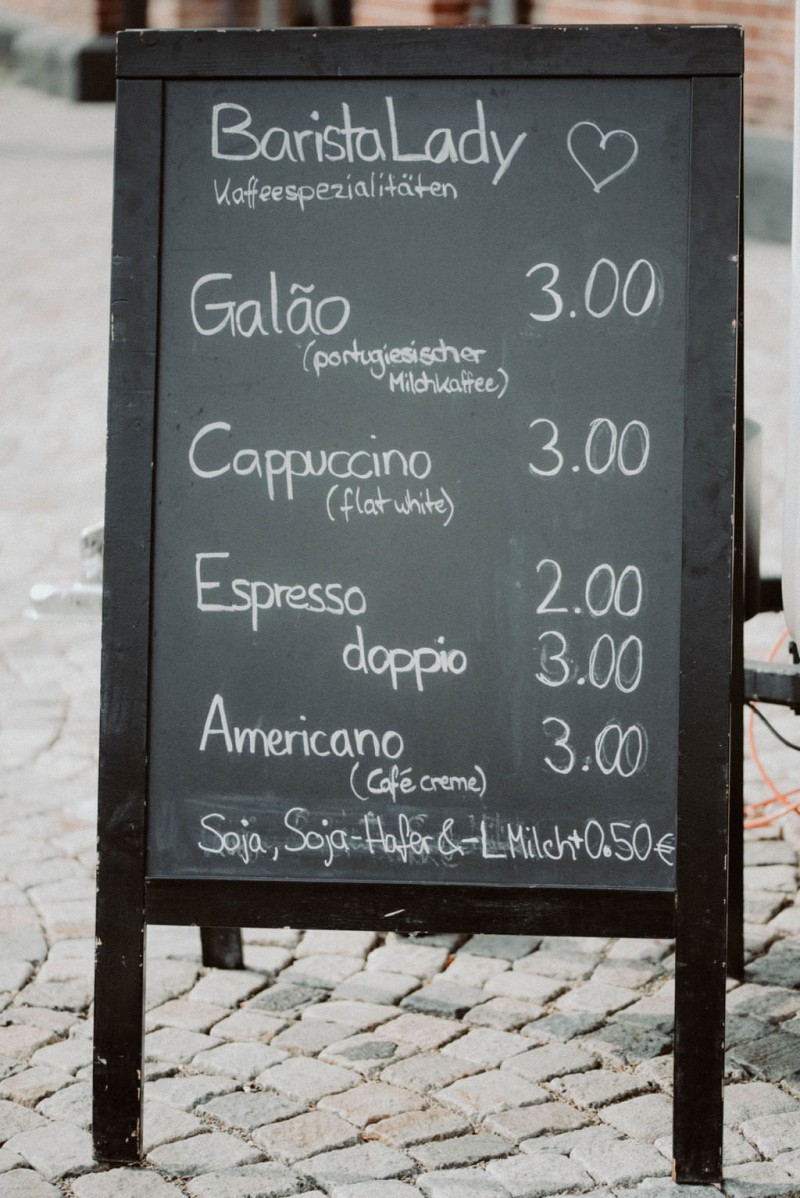 BaristaLady
Kaffeespezialitäten
Galão 3.00
(portugiesischer
Milchkaffee)
Cappuccino 3.00
(flat white)
Espresso 2.00
doppio 3.00
Americano 3.00
(Café creme)
Soja, Soja-Hafer &-L Milch+0.50€